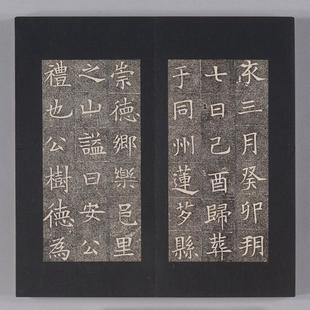 亥三月癸卯朔
七日己酉歸葬
于同州蓮芍縣
崇德鄉樂邑里
之山謚曰安公
禮也公樹德為